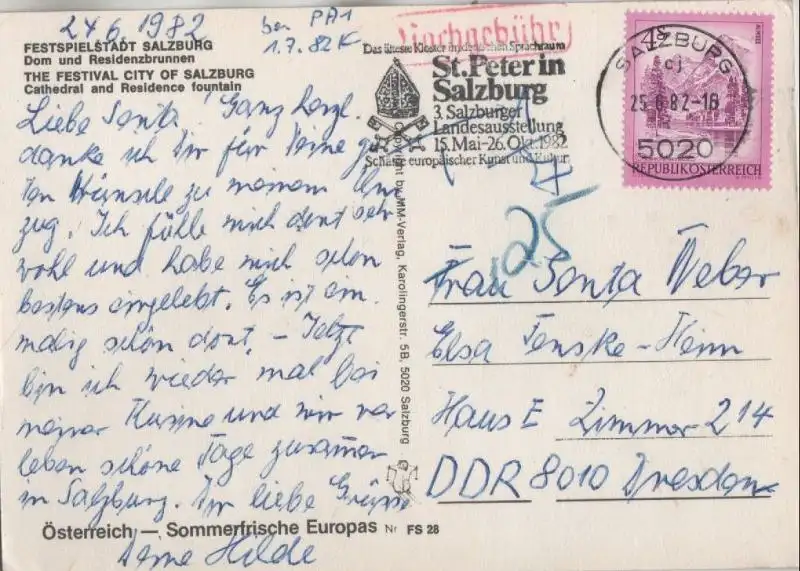 24.6.1982
bei PA1
1.7.82 K
Nachgebühr
FESTSPIELSTADT SALZBURG
Dom und Residenzbrunnen
THE FESTIVAL CITY OF SALZBURG
Cathedral and Residence fountain
Das älteste Kloster im deutschen Sprachraum
St. Peter in
Salzburg
3. Salzburger
Landesausstellung
15. Mai-26. Okt. 1982
Schätze europäischer Kunst und Kultur
SALZBURG
25.6.82-18
5020
REPUBLIK ÖSTERREICH
Liebe Senta! Ganz herzl.
danke ich Dir für Deine gu-
ten Wünsche zu meinem Um-
zug. Ich fühle mich dort sehr
wohl und habe mich schon
bestens eingelebt. Es ist ein-
malig schön dort. - Jetzt
bin ich wieder mal bei
meiner Kusine und wir ver-
leben schöne Tage zusammen
in Salzburg. Dir liebe Grüsse
Deine Hilde
Copyright by MM-Verlag, Karolingerstr. 5B, 5020 Salzburg
25
Frau Senta Weber
Elsa Fenske-Heim
Haus E Zimmer 214
DDR 8010 Dresden
Österreich — Sommerfrische Europas Nr FS 28